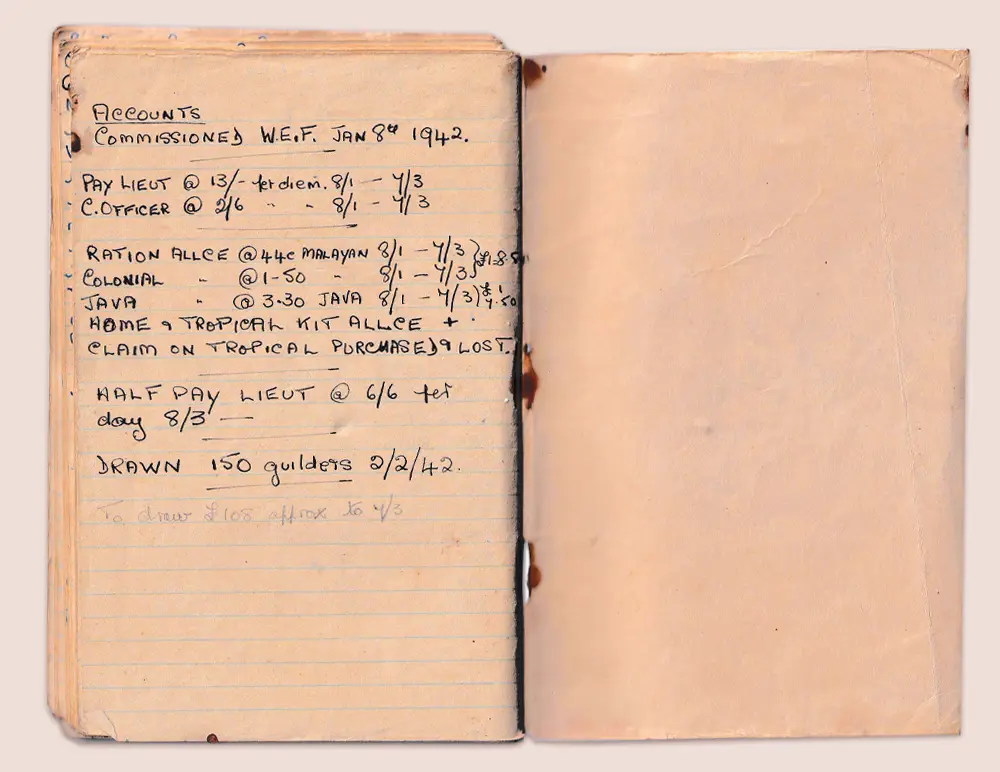 ACCOUNTS
COMMISSIONED W.E.F. JAN 8th 1942.
PAY LIEUT @ 13/- per diem. 8/1 — 7/3
C.OFFICER @ 2/6 " " 8/1 — 7/3
RATION ALLCE @ 44c MALAYAN 8/1 — 7/3
COLONIAL " @ 1-50 " 8/1 — 7/3
JAVA " @ 3.30 JAVA 8/1 — 7/3
HOME & TROPICAL KIT ALLCE +
CLAIM ON TROPICAL PURCHASED & LOST.
HALF PAY LIEUT @ 6/6 per
day 8/3 —
DRAWN 150 guilders 2/2/42.
To draw £108 approx to 7/3